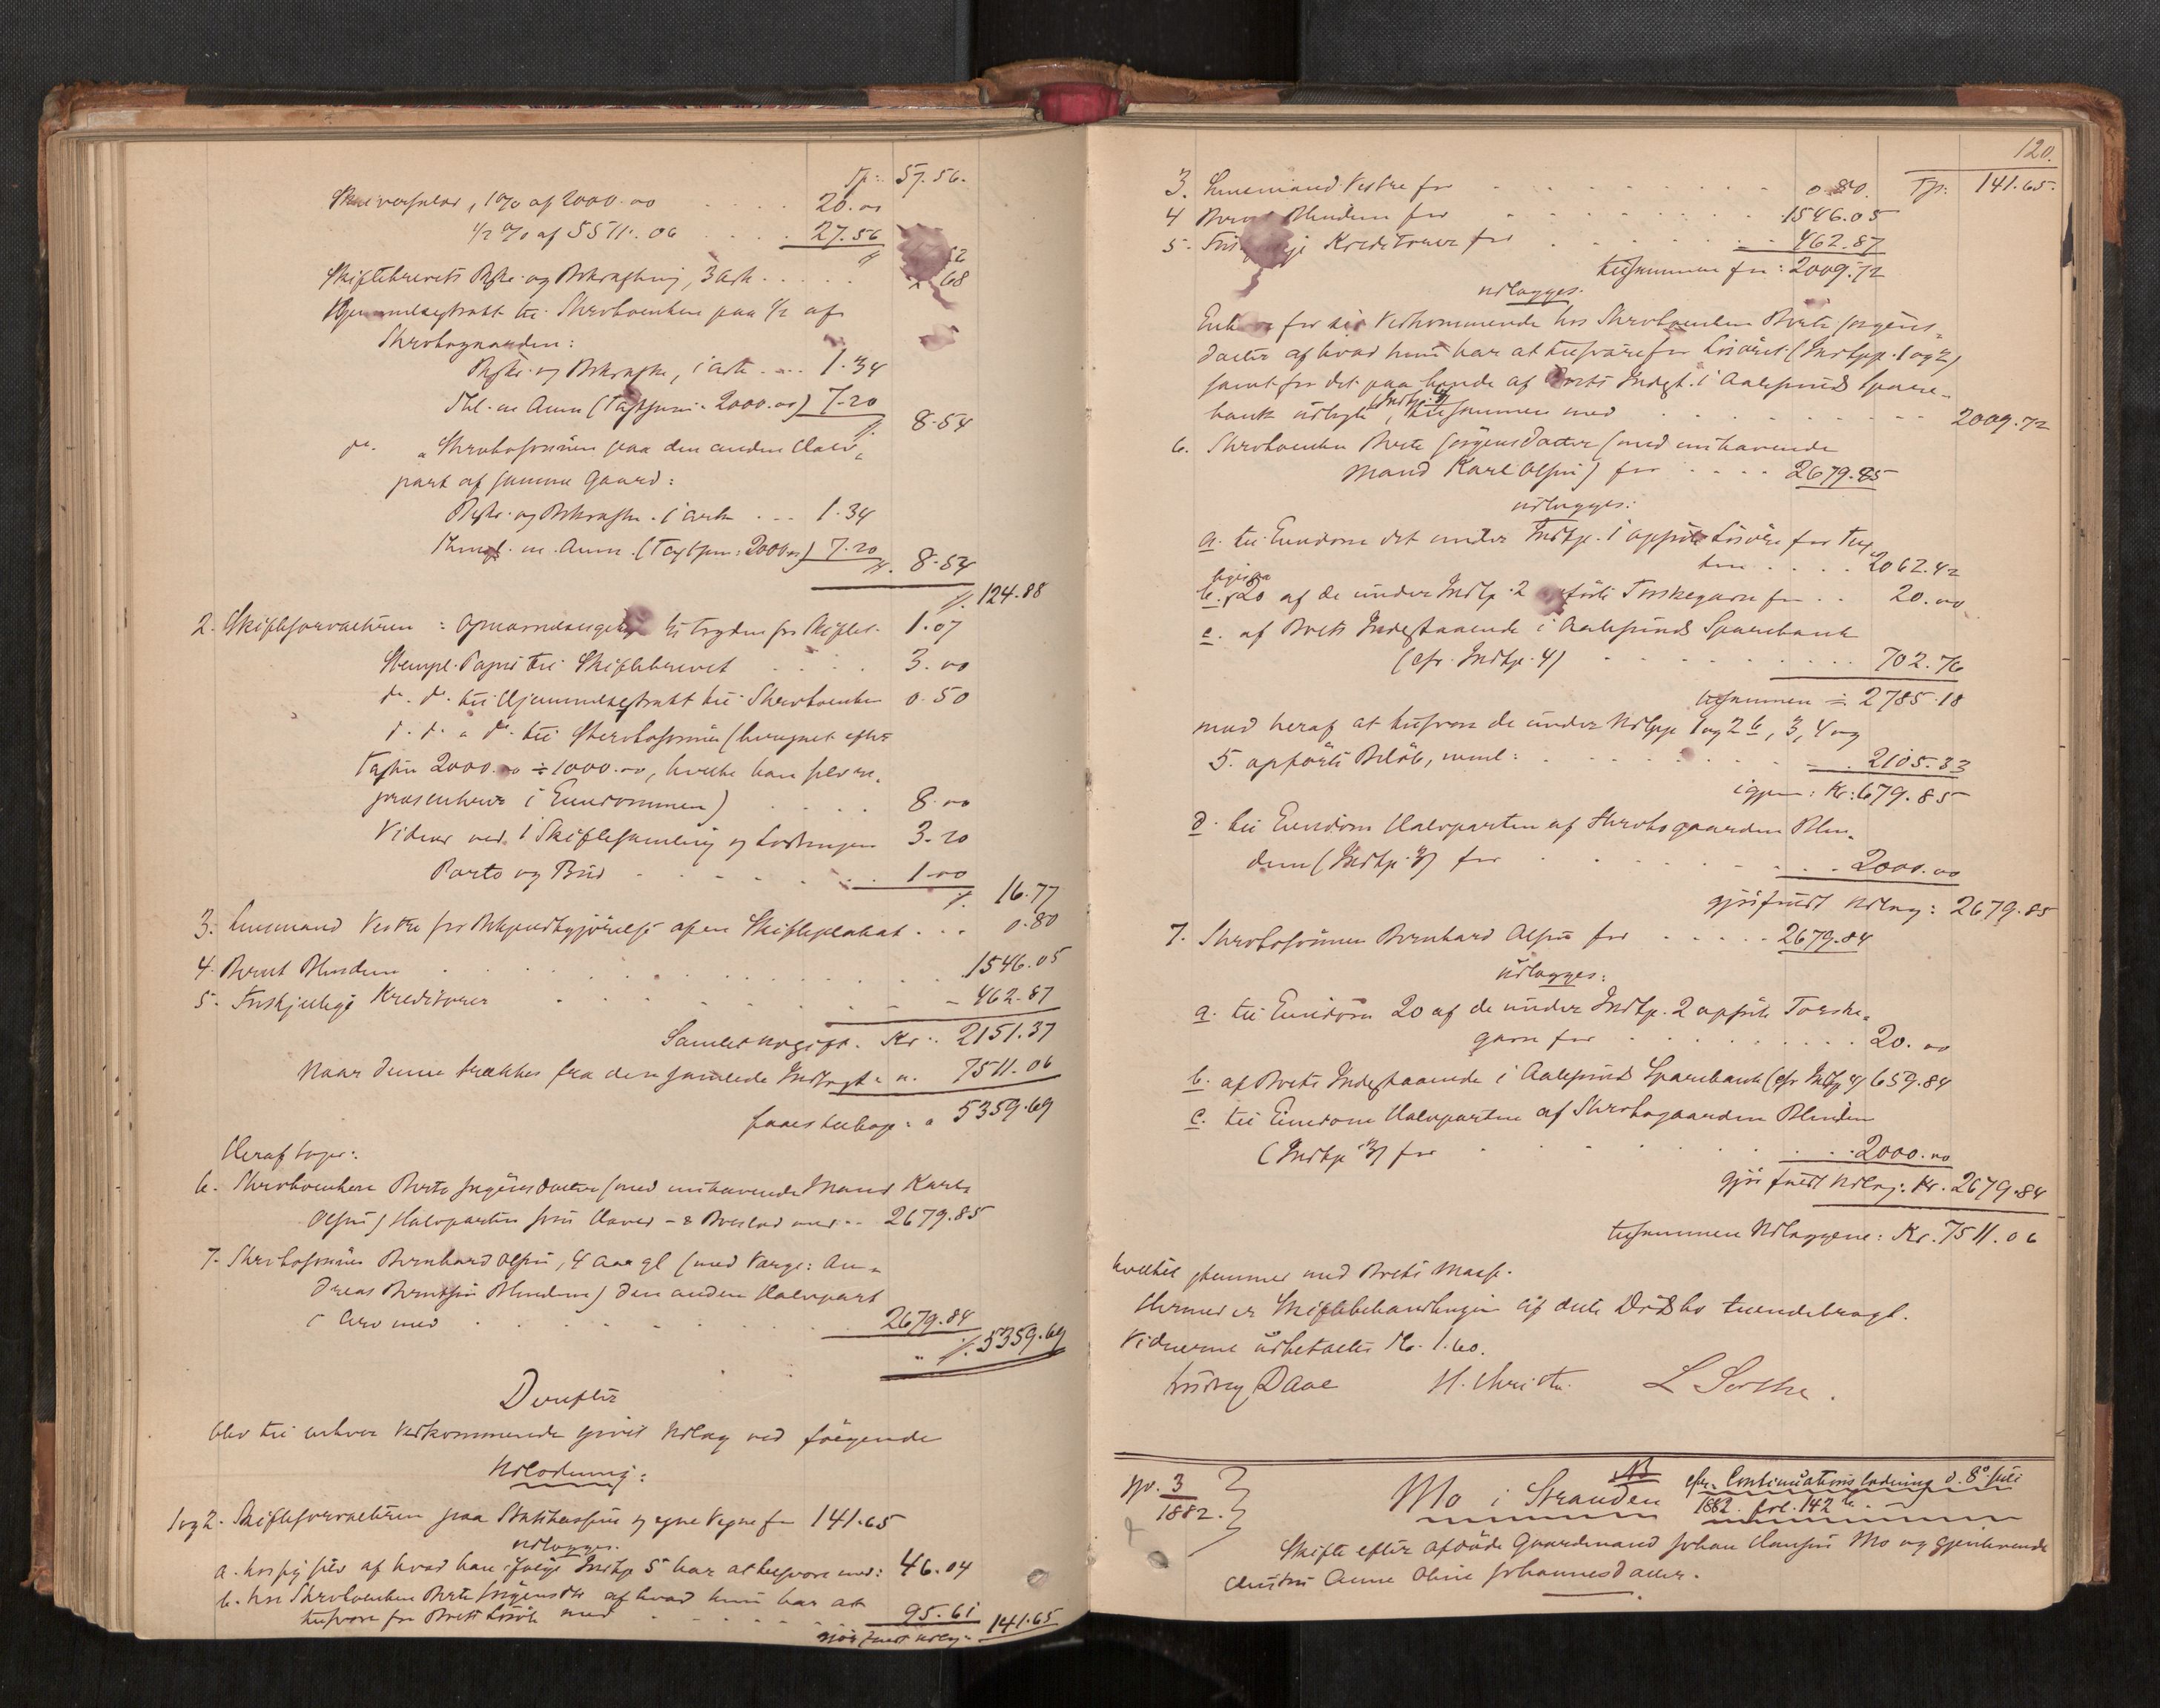 Tp: 57.56.
Skriversalær, 1 % af 2000.00 20.00
1/2 % af 5511.06 27.56
Skiftebrevets Beskr. og Bekræftning, 3 Ark 68
Hjemmelsextrakt til Sterboenken paa 1/2 af
Sterbogaarden:
Beskr. og Bekræftn., 1 Ark 1.34
Thl. m. Ann. (Taxtsum: 2000.00) 7.20
8.54
do. " Sterbosønnen paa den anden Halv-
part af samme Gaard:
Beskr. og Bekræftn. 1 Ark 1.34
Thingl. m. Ann. (Taxtsum: 2000.00) 7.20
8.54
124.88
2. Skifteforvalteren: til Fogden for Skiftet 1.07
Stempl. Papir til Skiftebrevet 3.00
do. do. til Hjemmelsextrakt til Sterboenken 0.50
do. do. " do. til Sterbosønnen (beregnet efter
Taxten 2000.00 ÷ 1000.00, hvilke han selv re-
præsenterer i Eiendommen) 8.00
Vidner ved 1 Skiftesamling og Lodningen 3.20
Porto og Bud 1.00
16.77
3. Lensmand Vestre for Bekjendtgjørelse af en Skifteplakat 0.80
4. Bernt Blindem 1546.05
5. Forskjellige Kreditorer 462.87
Samlet Udgift. Kr.: 2151.37
Naar denne trækkes fra den samlede Indtægt " 7511.06
faaes tilbage: " 5359.69
Heraf tager:
6. Sterboenken Berte Jørgensdatter (med nuhavende Mand Karl
Olsen) Halvparten som Hoved- & Broderlod med 2679.85
7. Sterbosønnen Bernhard Olsen, 4 Aar gl. (med Værge: An-
dreas Berntsen Blindem) den anden Halvpart
i Arv med 2679.84
5359.69
Derefter
blev til enhver Vedkommende givet Udlæg ved følgende
Udlodning:
1 og 2. Skifteforvalteren paa Statskassens og egne Vegne for 141.65
udlægges:
a. hos sig selv af hvad han ifølge Indtp. 5 har at tilsvare med: 46.04
b. hos Sterboenken Berte Jørgensdtr. af hvad hun har at
tilsvare for Boets Løsøre med 95.61
gjør fuldt Udlæg: 141.65
120.
3. Lensmand Vestre for 0.80. Tp: 141.65.
4 Bernt Blindem for 1546.05
5. Kreditorer for 462.87
tilsammen for: 2009.72
udlægges:
for sit Vedkommende hos Sterboenken Berte Jørgens-
datter af hvad hun har at tilsvare for Løsøret (Indtpp. 1 og 2)
samt for det paa hende af Boets Indtgt. i Aalesunds Spare-
bank udlagte, tilsammen med 2009.72
6. Sterboenken Berte Jørgensdatter (med nuhavende
Mand Karl Olsen) for 2679.85
udlægges:
a. til Eiendom det under Indtp. 1 opførte Løsøre for Tax-
ten 2062.42
b. ligesaa 20 af de under Indtp. 2 opførte Torskegarn for 20.00
c. af Boets Indestaaende i Aalesunds Sparebank
(cfr. Indtp. 4) 702.76
tilsammen = 2785.18
mod heraf at tilsvare de under Udlpp. 1 og 2 b, 3, 4 og
5 opførte Beløb, neml: 2105.33
igjen: Kr: 679.85
d. til Eiendom Halvparten af Sterbogaarden Blin-
dem (Indtp. 3) for 2000.00
gjør fuldt Udlæg: 2679.85
7. Sterbosønnen Bernhard Olsen for 2679.84
udlægges:
a. til Eiendom 20 af de under Indtp. 2 opførte Torske-
garn for 20.00
b. af Boets Indestaaende i Aalesunds Sparebank (cfr. Indtp. 4) 659.84
c. til Eiendom Halvparten af Sterbogaarden Blindem
(Indtp. 3) for 2000.00
gjør fuldt Udlæg: Kr. 2679.84
tilsammen Udlæggene: Kr. 7511.06
hvilket stemmer med Boets Masse.
Hermed er Skiftebehandlingen af dette Dødsbo tilendebragt.
Vidnerne udbetaltes Kr. 1.60.
Ludvig Daae H. Christie. L
No. 3
1882.
Mo i Stranden NB cfr. Continuationslodning d. 8de Juli
1882. fol. 142 b.
Skifte efter afdøde Gaardmand Johan Hansen Mo og gjenlevende
Hustru Anne Oline Johannesdatter.